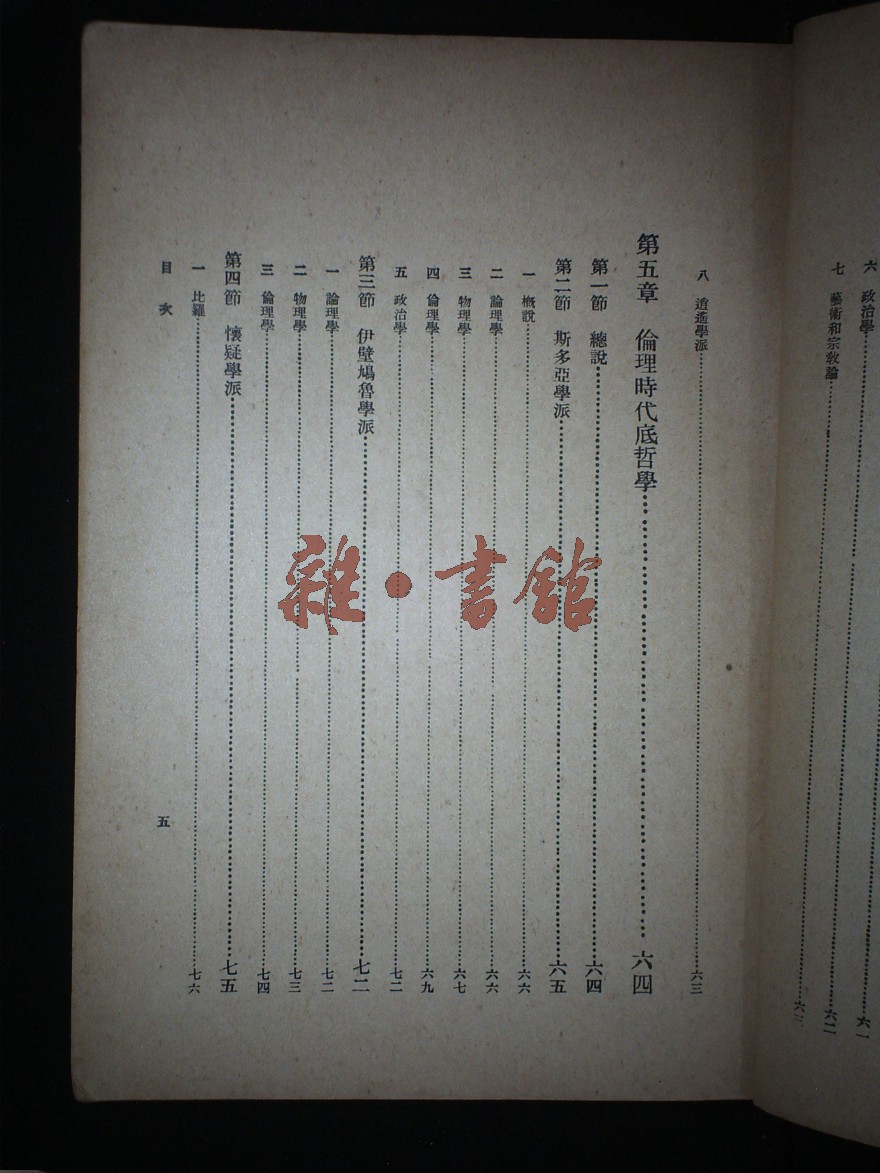 六　政治學……六一
七　藝術和宗教論……六二
八　逍遙學派……六三
第五章　倫理時代底哲學……六四
第一節　總說……六四
第二節　斯多亞學派……六五
一　概說……六六
二　論理學……六六
三　物理學……六七
四　倫理學……六九
五　政治學……七二
第三節　伊壁鳩魯學派……七二
一　論理學……七二
二　物理學……七三
三　倫理學……七四
第四節　懷疑學派……七五
一　比羅……七六
目次
五
雜·書館